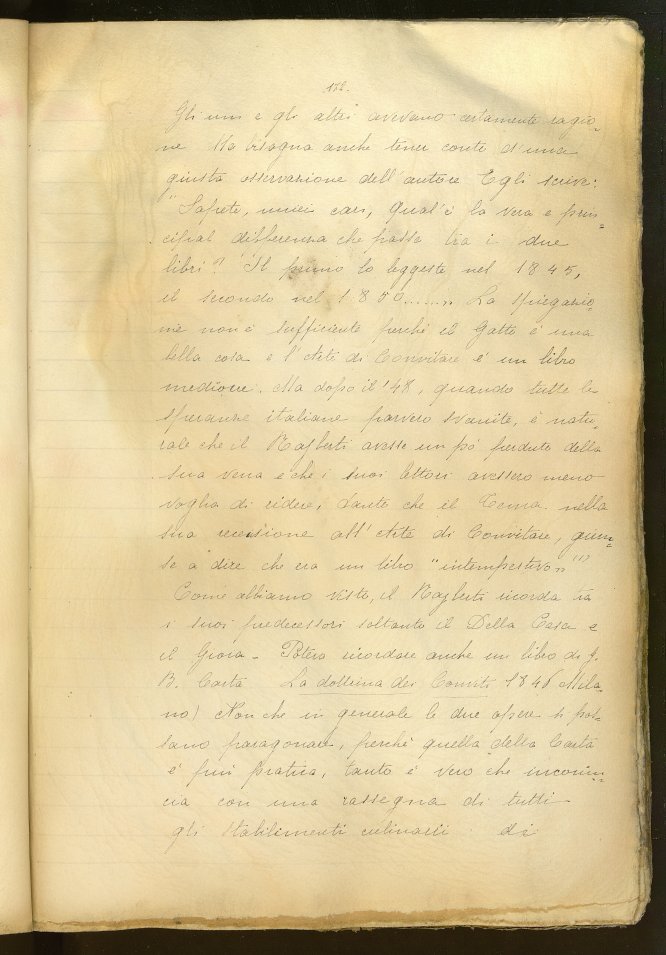 172.
Gli uni e gli altri avevano certamente ragio-
ne Ma bisogna anche tener conto d'una
giusta osservazione dell'autore Egli scrive:
"Sapete, amici cari, qual'è la vera e prin-
cipal differenza che passa tra i due
libri? Il primo lo leggeste nel 1845,
il secondo nel 1850......„ La spiegazio-
ne non è sufficiente perchè il Gatto è una
bella cosa e l'Arte di Convitare è un libro
mediocre. Ma dopo il '48, quando tutte le
speranze italiane parvero svanite, è natu-
rale che il Rajberti avesse un pò perduto della
sua vena e che i suoi lettori avessero meno
voglia di ridere, tanto che il Tenca nella
sua recensione all'Arte di Convitare, giun-
se a dire che era un libro "intempestivo„ (1)
Come abbiamo visto, il Rajberti ricorda tra
i suoi predecessori soltanto il Della Casa e
il Gioia - Poteva ricordare anche un libro di G.
B. Carta La dottrina dei Conviti 1846 Mila-
no) Non che in generale le due opere si pos-
sano paragonare, perchè quella della Carta
è più pratica, tanto è vero che incomin-
cia con una rassegna di tutti
gli stabilimenti culinarii di